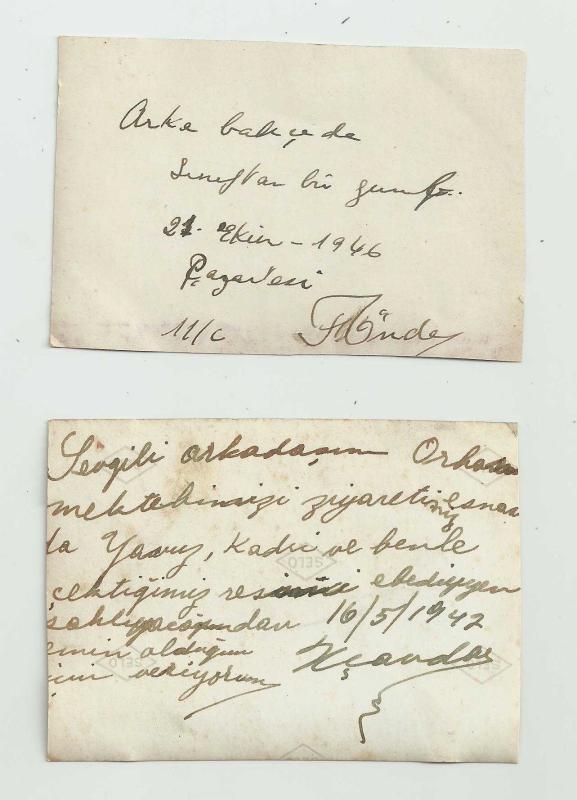 Arka bahçede
Sınıftan bir gurup.
21. Ekin - 1946
Pazartesi
11/c
Sevgili arkadaşım Orhan
mektebimizi ziyaretiniz esnasın
da Yavuz, Kadri ve benle
çektiğimiz resimi ebediyyen
saklıyacağından 16/5/1942
emin olduğum
için veriyorum
SELO
SELO
SELO